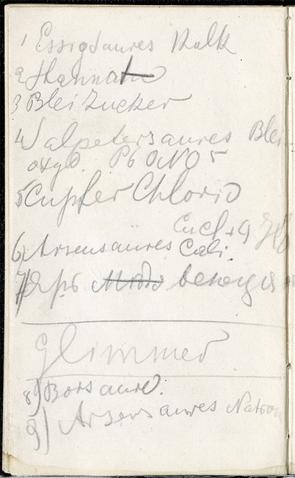 1 Essigsaures Kalk
2
3 Bleizucker
4 Salpetersaures Blei
oxyd. Pb O NO5
5 Cupfer Chlorid
CuCl + 9
6) Arsensaures Cali.
7)
Glimmer
8) Borsaure.
9) Arsensaures Natron